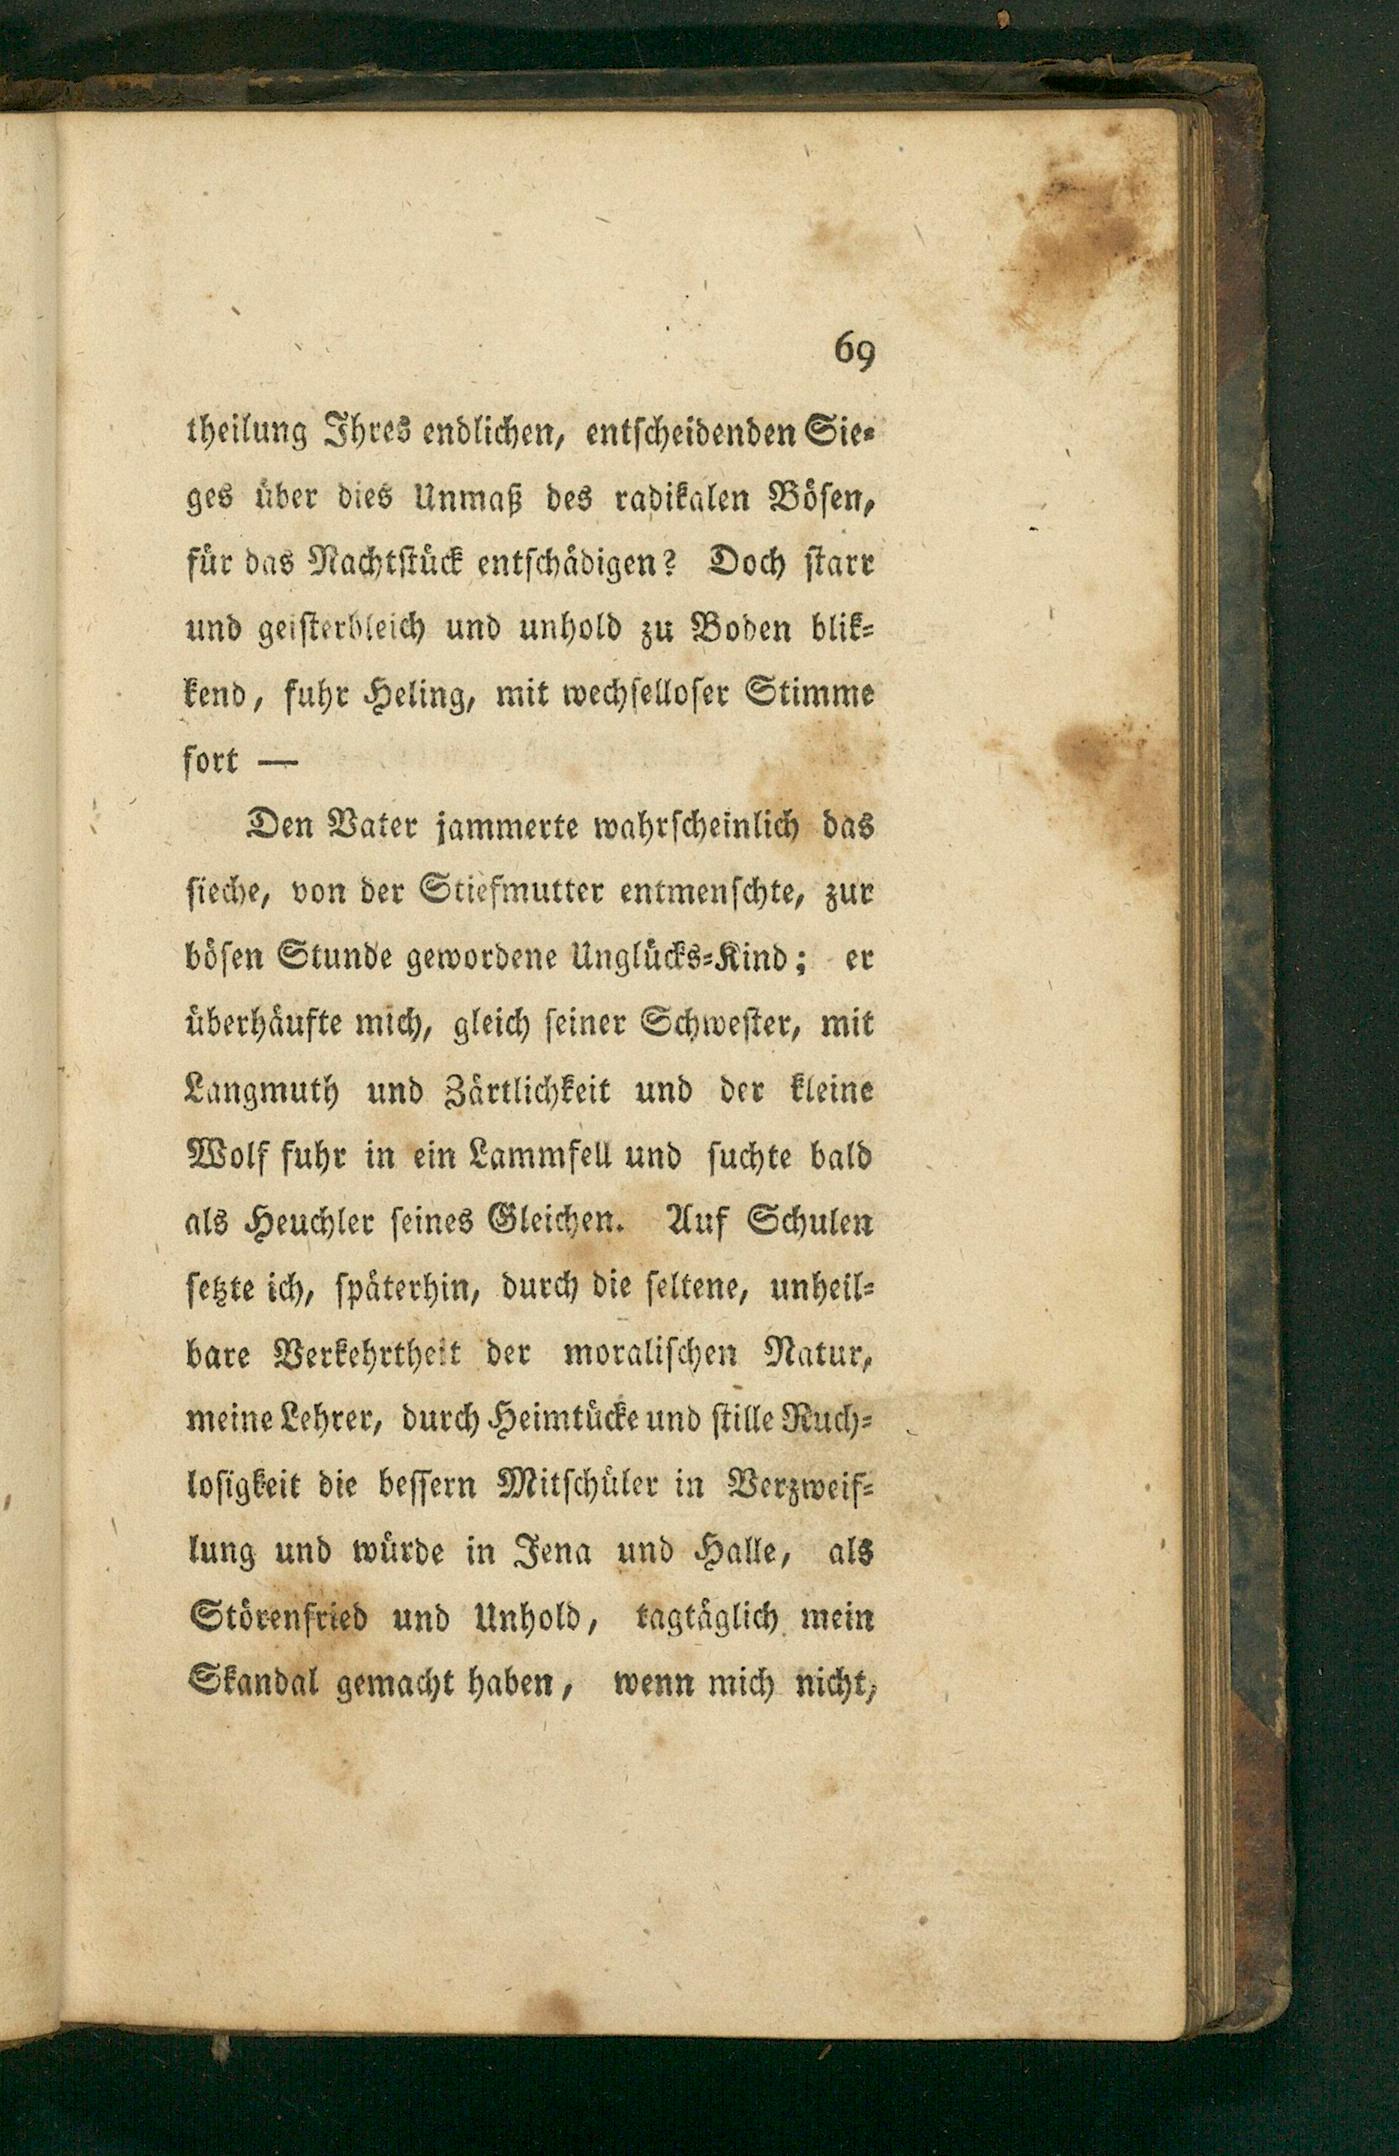 69
theilung Ihres endlichen, entscheidenden Sie-
ges über dies Unmaß des radikalen Bösen,
für das Nachtstück entschädigen? Doch starr
und geisterbleich und unhold zu Boden blik-
kend, fuhr Heling, mit wechselloser Stimme
fort —
Den Vater jammerte wahrscheinlich das
sieche, von der Stiefmutter entmenschte, zur
bösen Stunde gewordene Unglücks-Kind; er
überhäufte mich, gleich seiner Schwester, mit
Langmuth und Zärtlichkeit und der kleine
Wolf fuhr in ein Lammfell und suchte bald
als Heuchler seines Gleichen. Auf Schulen
setzte ich, späterhin, durch die seltene, unheil-
bare Verkehrtheit der moralischen Natur,
meine Lehrer, durch Heimtücke und stille Ruch-
losigkeit die bessern Mitschüler in Verzweif-
lung und würde in Jena und Halle, als
Störenfried und Unhold, tagtäglich mein
Skandal gemacht haben, wenn mich nicht,